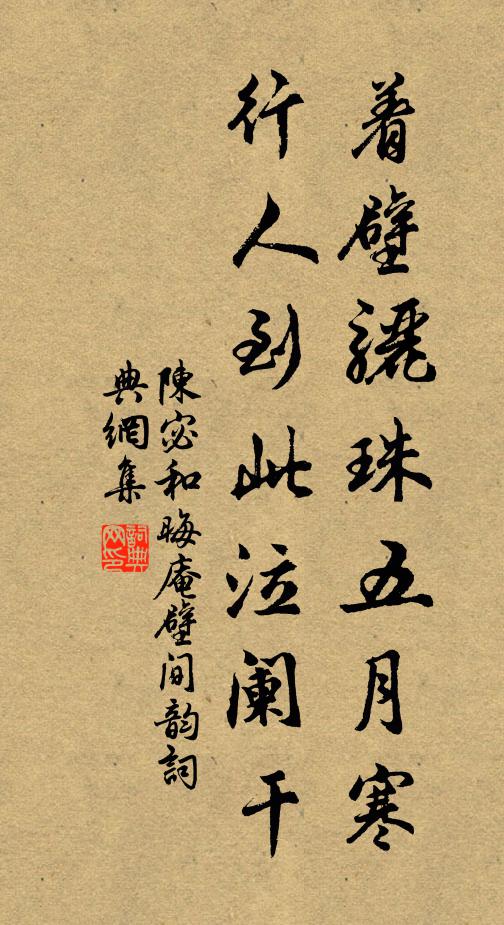 着壁骊珠五月寒
行人到此泣阑干
陳宓和晦庵壁间韵詞
典網集
詞典网印